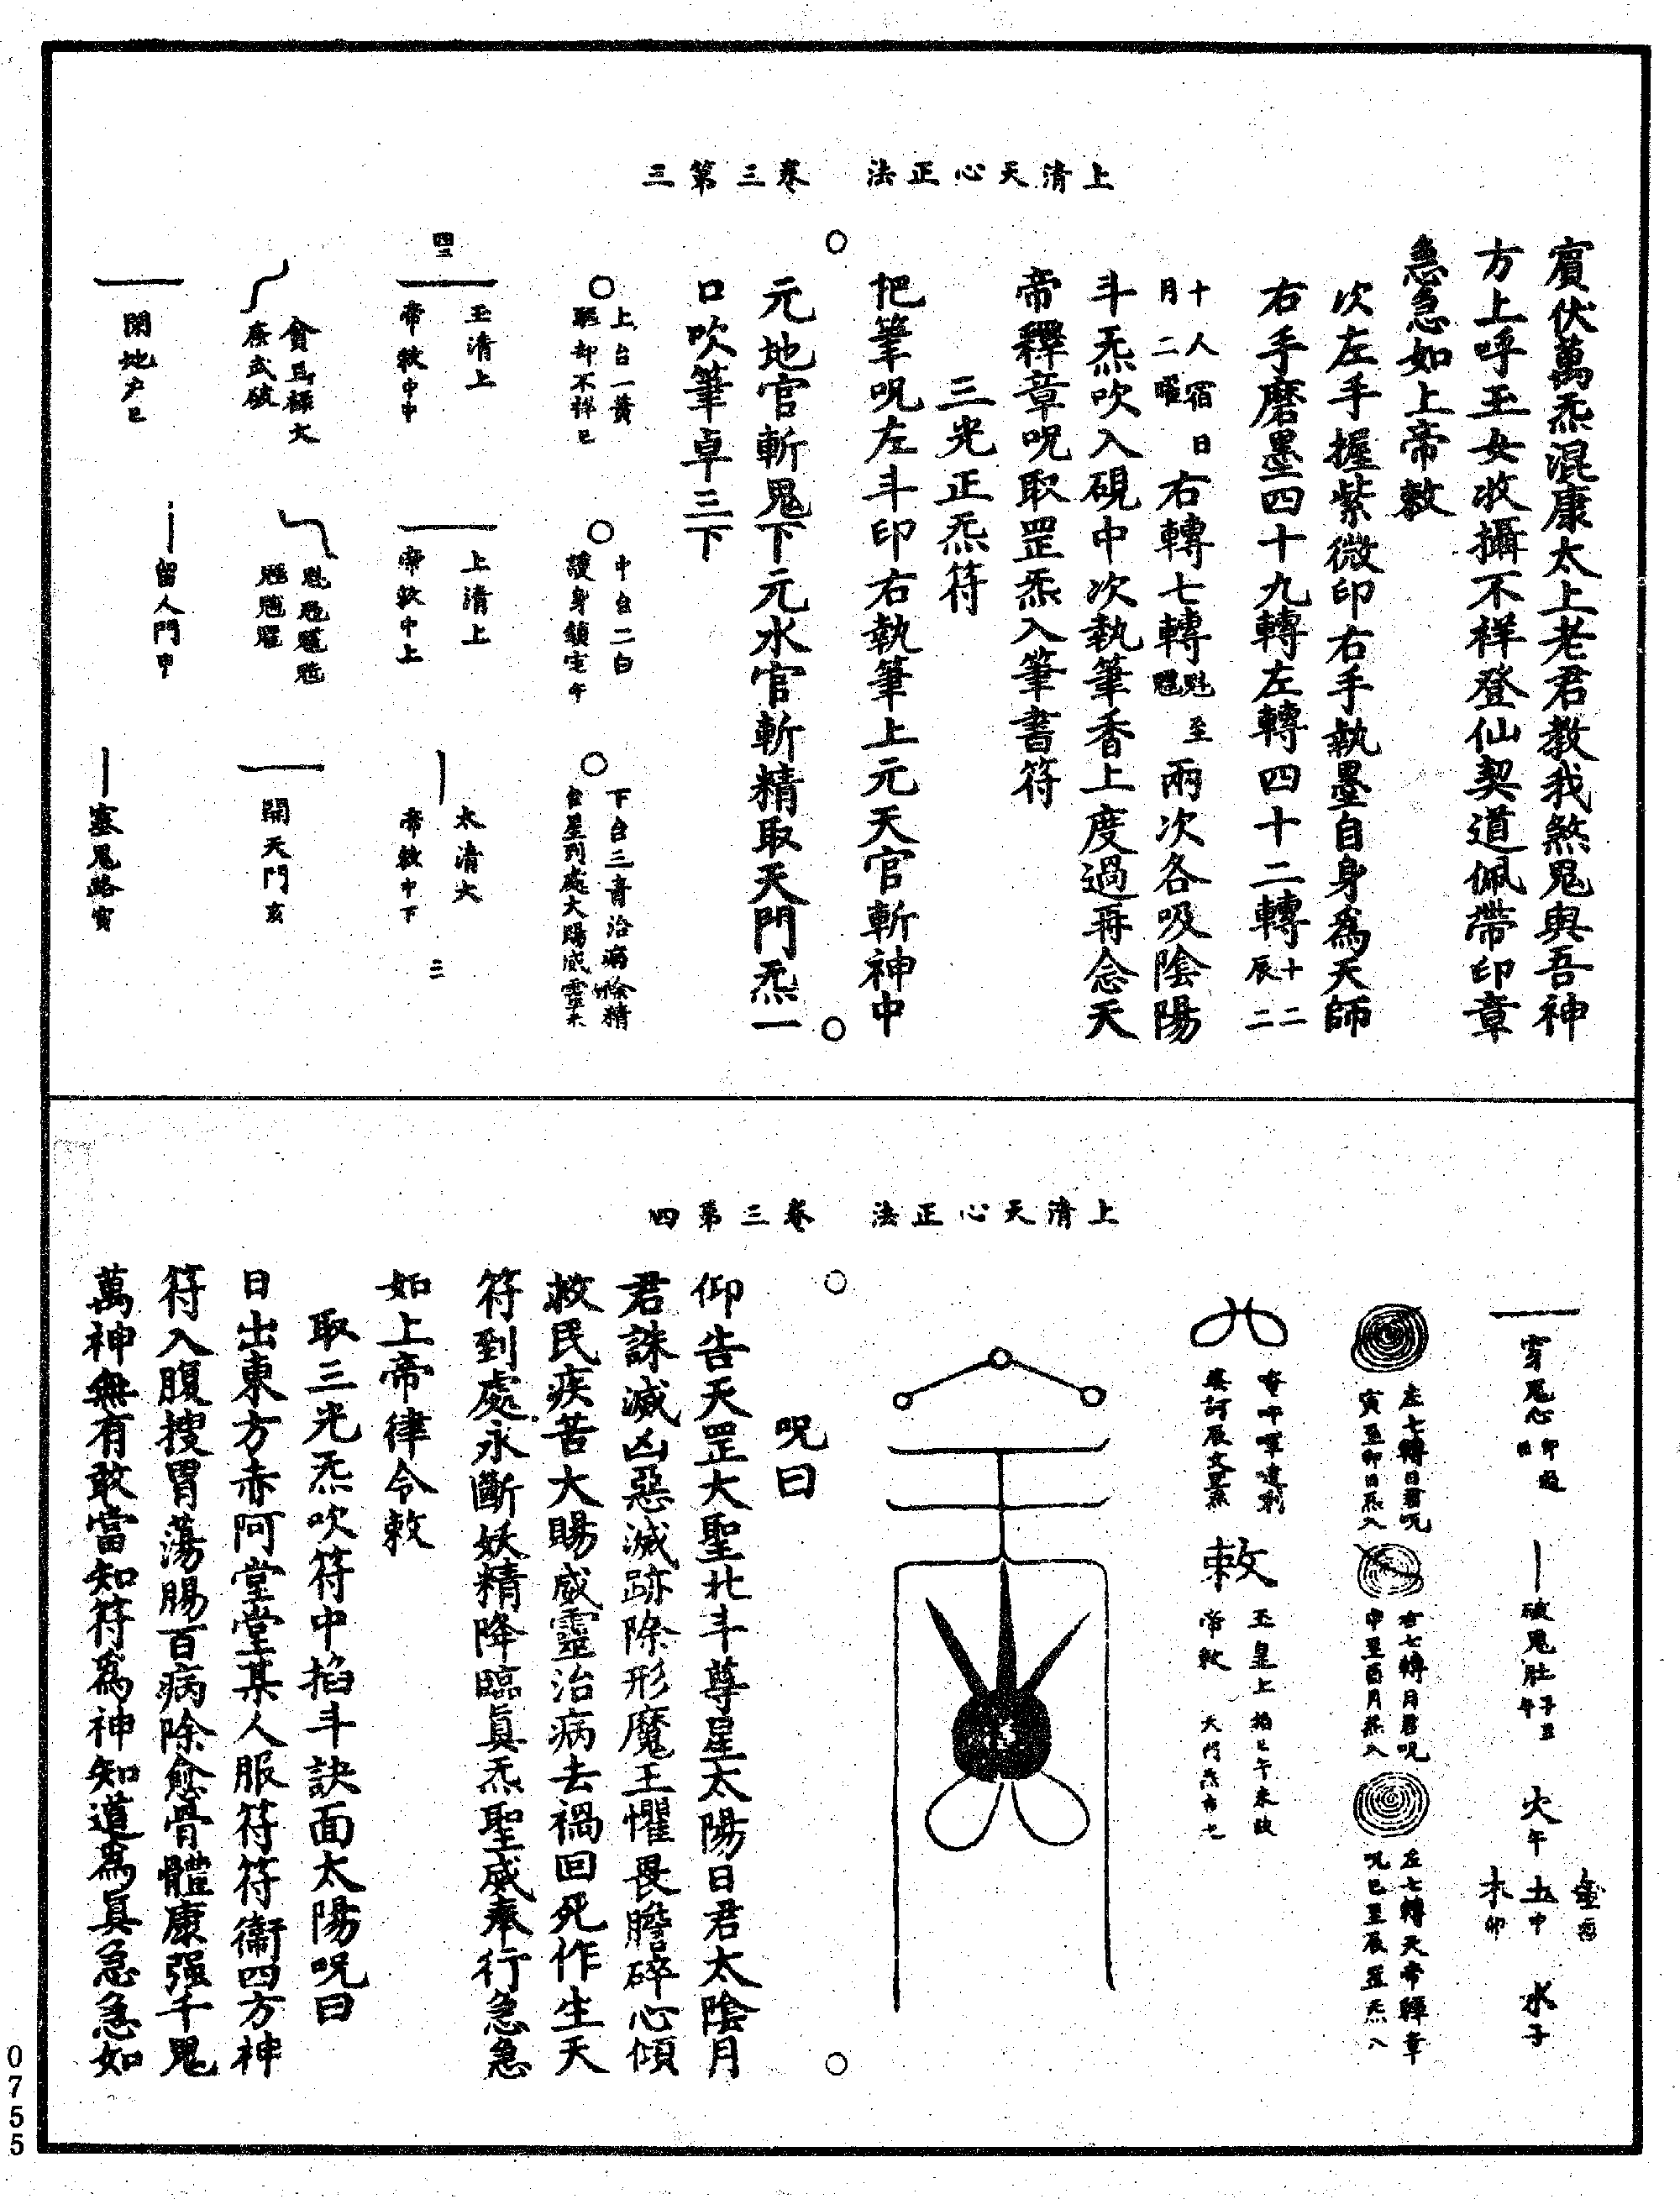 上清天心正法　卷三第三
賔伏萬炁混康太上老君教我煞鬼與吾神
方上呼玉女收攝不祥登仙契道佩帶印章
急急如上帝敕
次左手握紫微印右手執墨自身為天師
右手磨墨四十九轉左轉四十二轉十二辰二
十人宿日月二曜右轉七轉魁至魓兩次各吸陰陽
斗炁吹入硯中次執筆香上度過再念天
帝釋章呪取罡炁入筆書符
三光正炁符
把筆呪左斗印右執筆上元天官斬神中
元地官斬鬼下元水官斬精取天門炁一
口吹筆卓三下
上台一黃
驅却不祥巳
中台二白
護身鎮宅午
下台三青治病除精
台星到處大賜威靈未
四三
玉清上
帝敕中中
上清上
帝敕中上
太清大
帝敕中下
三
貪巨祿文
廉武破
開天門亥
閉地户巳
留人門申
塞鬼路寅
上清天心正法　卷三第四
穿鬼心
破鬼肚子丑午
火午
土中
木卯
水子
左七轉日君呪
寅至卯日炁入
右七轉月君呪
申至酉月炁入
左七轉天帝釋章
呪巳至辰罡炁入
敕
玉皇上
帝敕
呪曰
仰告天罡大聖北斗尊星太陽日君太陰月
君誅滅凶惡滅跡除形魔王懼畏膽碎心傾
救民疾苦大賜威靈治病去禍回死作生天
符到處永斷妖精降臨眞炁聖威奉行急急
如上帝律令敕
取三光炁吹符中掐斗訣面太陽呪曰
日出東方赤阿堂堂某人服符符衞四方神
符入腹搜胃蕩腸百病除愈骨體康强千鬼
萬神無有敢當知符為神知道為眞急急如
0755